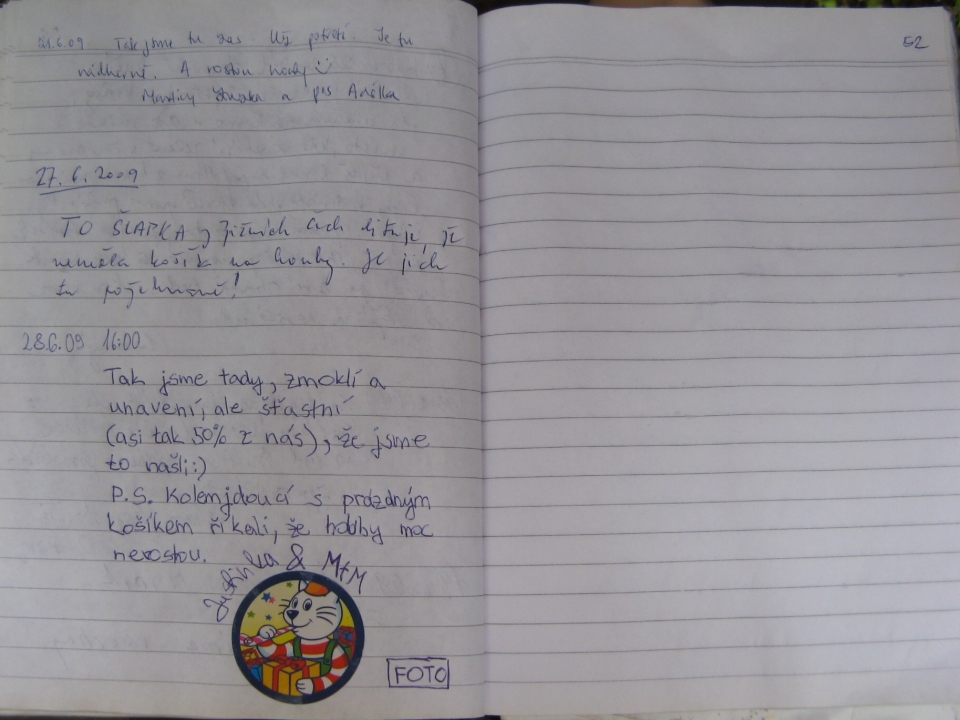 21.6.09 Tak jsme tu zas. Už potřetí. Je tu
nádherně. A rostou houby
a pes
27.6.2009
TO ŠLAPKA, lituje, že
neměla košík na houby. Je jich
tu požehnaně!
28.6.09 16:00
Tak jsme tady, zmoklí a
unavení, ale šťastní
(asi tak 50% z nás), že jsme
to našli:)
P.S. Kolemjdoucí s prázdným
košíkem říkali, že houby moc
nerostou.
Justinka & M+M
FOTO
52